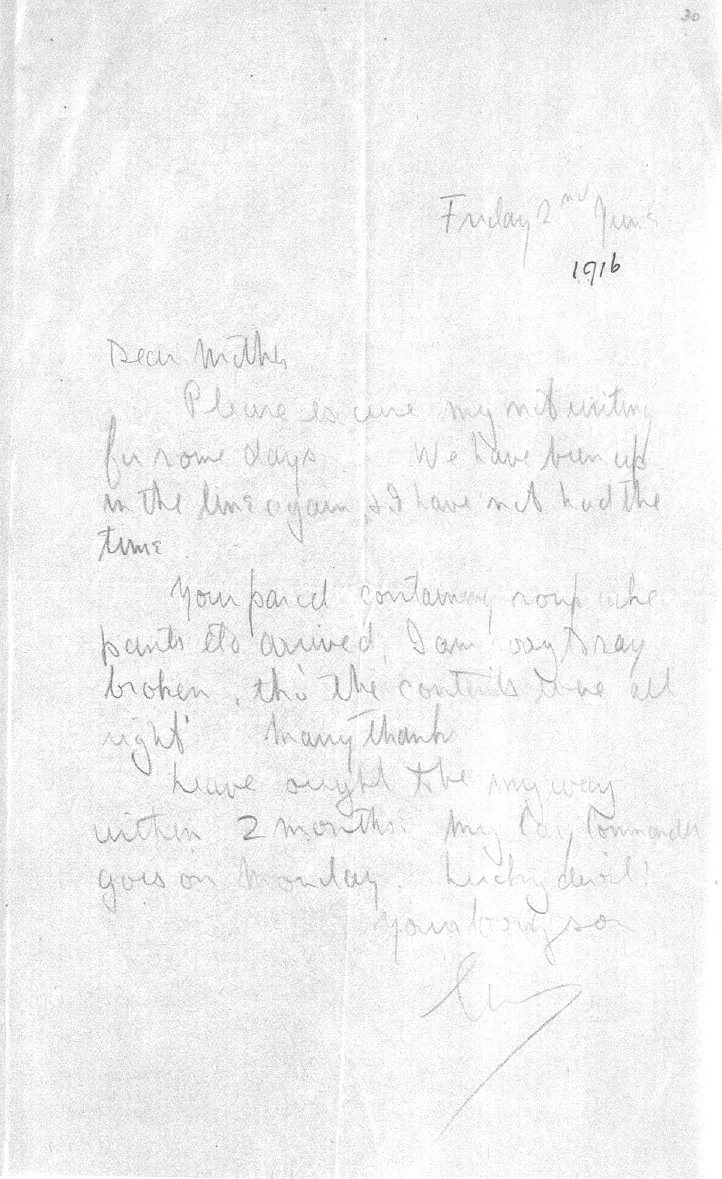 30
Friday 2nd June
1916
Dear Mother
Please excuse my not writing
for some days. We have been up
in the line again, & I have not had the
time.
Your parcel containing soup cake
pants etc arrived, I am sorry to say
broken, tho' the contents were all
right. Many thanks
Leave ought to be my way
within 2 months. My Coy Commander
goes on Monday. Lucky devil!
Your loving son